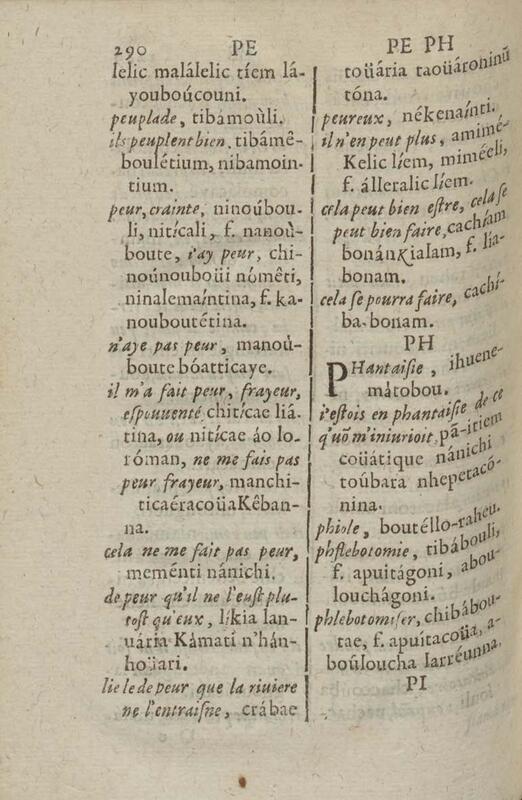 290 PE
lelic malálelic tíem lá-
youboúcouni.
peuplade, tibámoùli.
ils peuplent bien, tibámê-
boulétium, nibamoin-
tium.
peur, crainte, ninoúbou-
li, nitícali, f. nanoù-
boute, i'ay peur, chi-
noúnouboüi nómêti,
ninalemaíntina, f. ka-
nouboutétina.
n'aye pas peur, manoù-
boute bóatticaye.
il m'a fait peur, frayeur,
espouuenté chitícae liá-
tina, ou nitícae áo lo-
róman, ne me fais pas
peur frayeur, manchi-
ticaéracoüaKêban-
na.
cela ne me fait pas peur,
meménti nánichi.
de peur qu'il ne l'eust plu-
tost qu'eux, líkia lan-
uária Kámatí n'hán-
hoüari.
lie le de peur que la riuiere
ne l'entraisne, crábae
PE PH
toüária taoüároninũ
tóna.
peureux, nékenaínti.
il n'en peut plus, amimé-
Kelic líem, miméeli,
f. álleralic líem.
cela peut bien estre, cela se
peut bien faire, cachíam
bonánKialam, f. lia-
bonam.
cela se pourra faire, cachi-
ba-bonam.
PH
PHantaisie, ihuene-
mátobou.
i'estois en phantaisie de ce
qu'õ m'iniurioit, pã-itiem
coüátique nánichi
toúbara nhepetacó-
nina.
phiole, boutéllo-raheu.
phflebotomie, tibábouli,
f. apuitágoni, abou-
louchágoni.
phlebotomiser, chibábou-
tae, f. apuítacoüa, a-
boúloucha larréunna.
PI